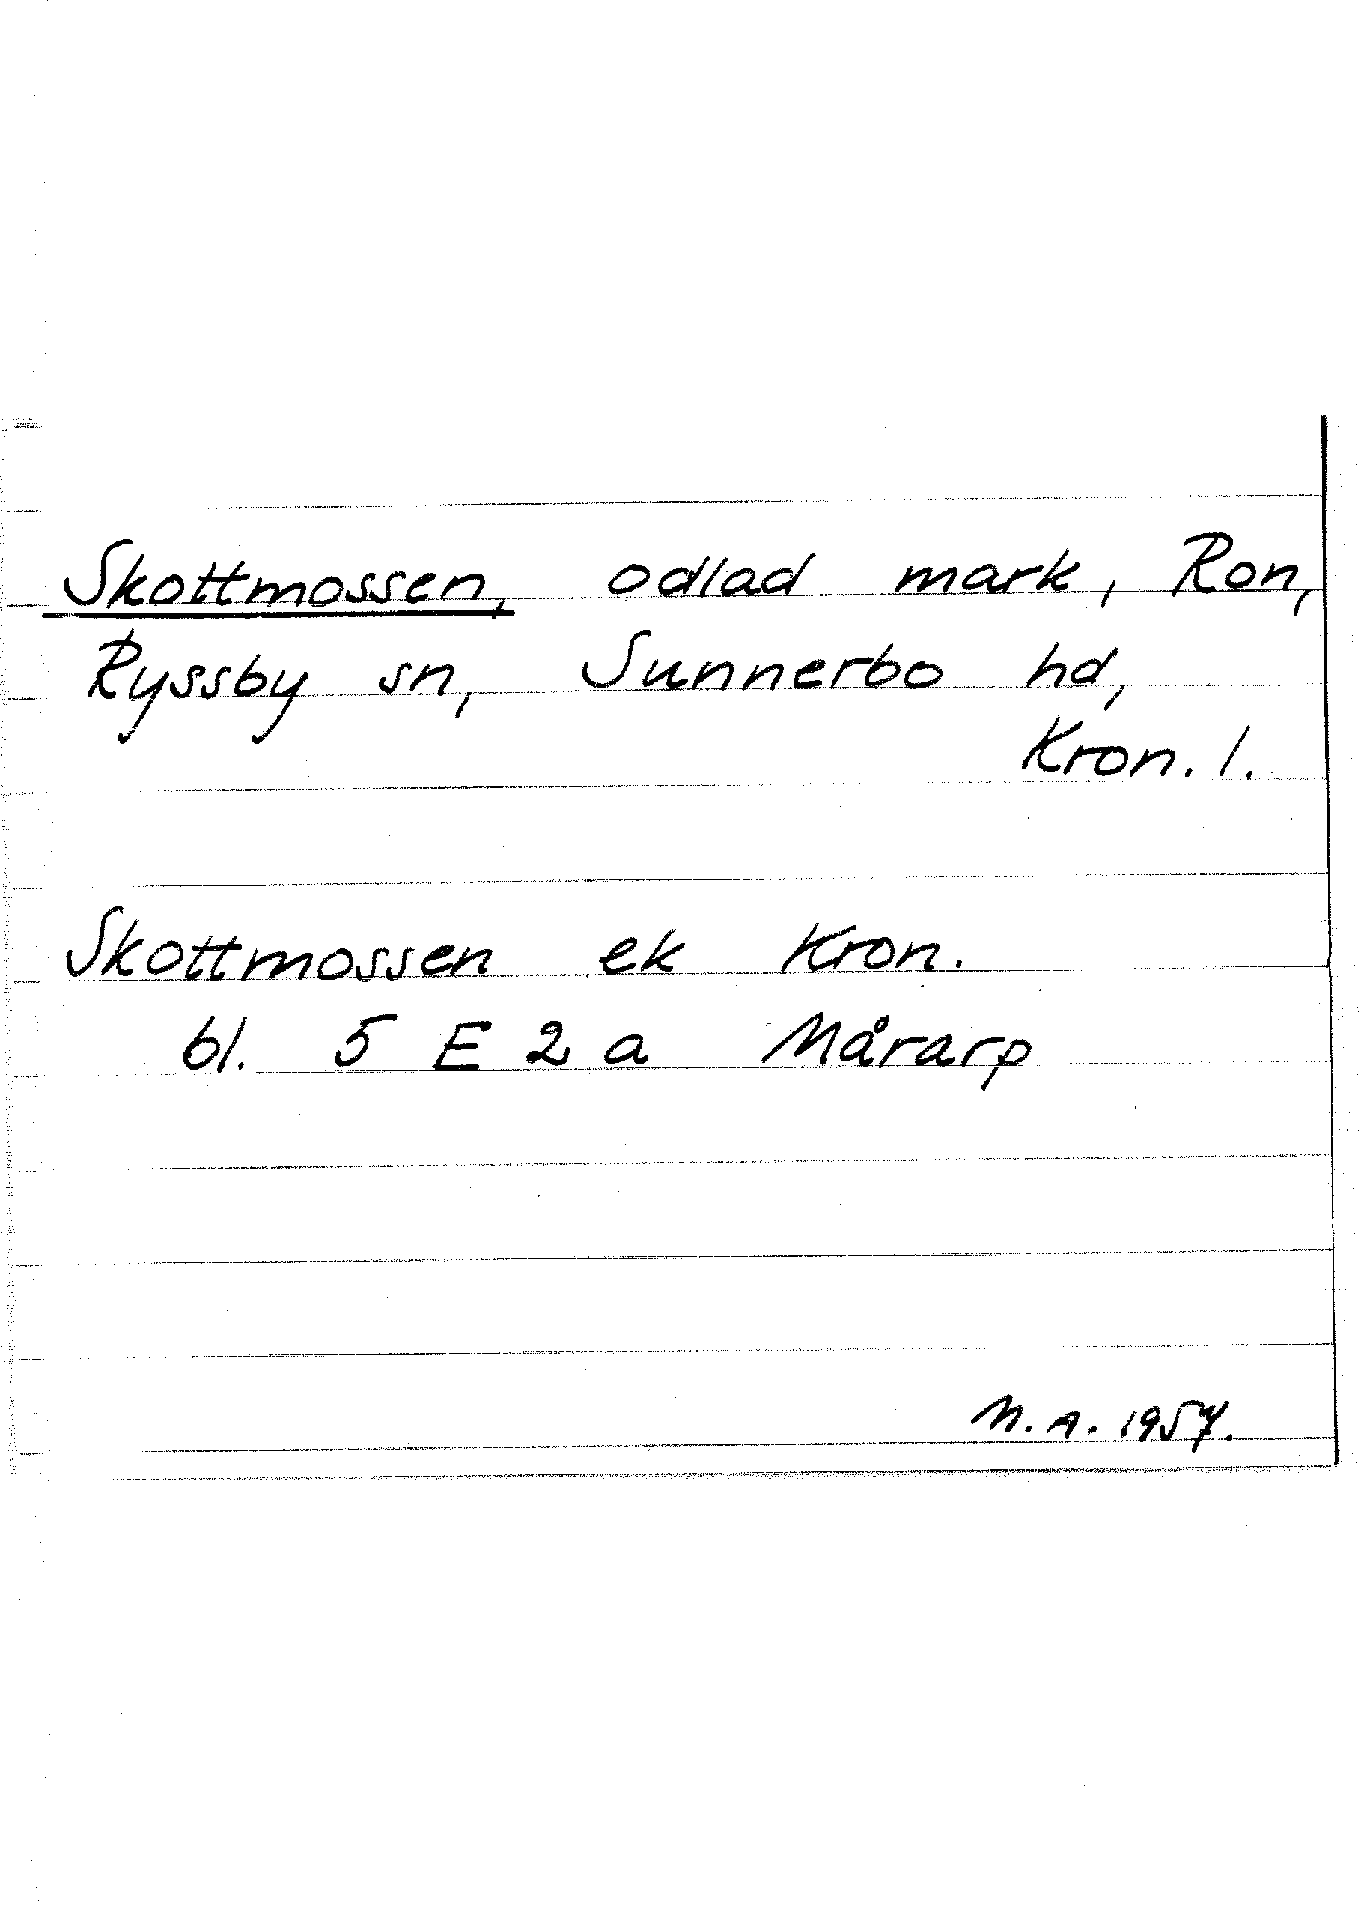 Skottmossen, odlad mark, Ron,
Ryssby sn, Sunnerbo hd,
Kron. l.
Skottmossen ek Kron.
bl. 5 E 2 a Mårarp
N.A. 1957.